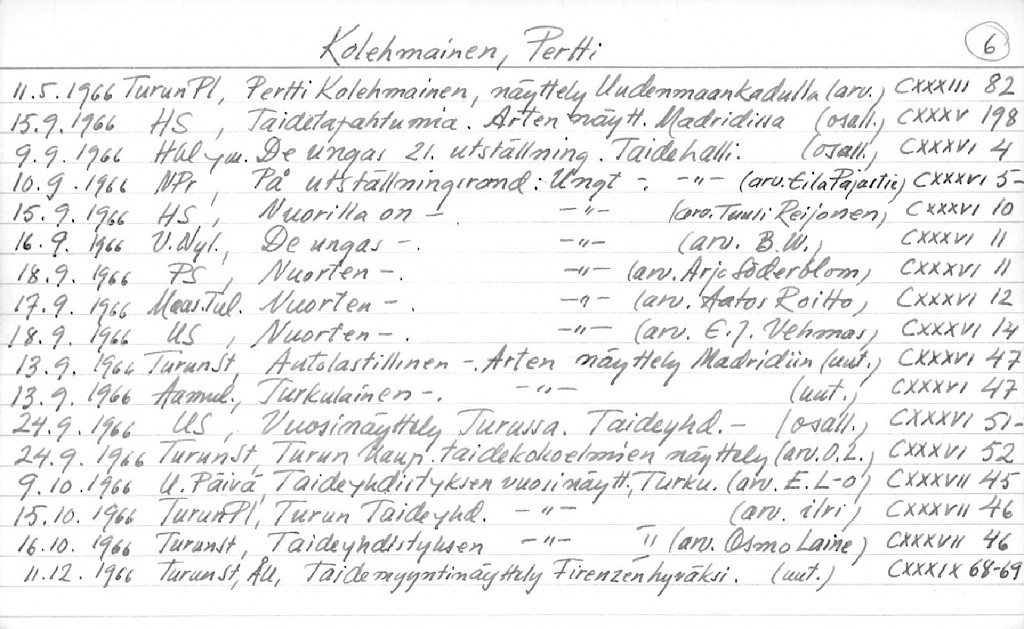 Kolehmainen, Pertti 6
11.5.1966 TurunPl, Pertti Kolehmainen, näyttely Uudenmaankadulla (arv.) CXXXIII 82
15.9.1966 HS, Taidetapahtumia. Arten näytt. Madridissa (osall.) CXXXV 198
9.9.1966 Hbl ym. De ungas 21. utställning. Taidehalli. (osall.) CXXXVI 4
10.9.1966 NPr, På utställningsrond: Ungt -. -"- (arv. Eila Pajastie) CXXXVI 5-
15.9.1966 HS, Nuorilla on - -"- (arv. Tuuli Reijonen) CXXXVI 10
16.9.1966 V.Nyl., De ungas -. -"- (arv. B.W.) CXXXVI 11
18.9.1966 PS, Nuorten -. -"- (arv. Arjo Söderblom) CXXXVI 11
17.9.1966 Maas.Tul. Nuorten -. -"- (arv. Aatos Roitto) CXXXVI 12
18.9.1966 US, Nuorten -. -"- (arv. E.J. Vehmas) CXXXVI 14
13.9.1966 TurunSt, Autolastillinen -. Arten näyttely Madridiin (uut.) CXXXVI 47
13.9.1966 Aamul., Turkulainen -. -"- (uut.) CXXXVI 47
24.9.1966 US, Vuosinäyttely Turussa. Taideyhd. - (osall.) CXXXVI 51-
24.9.1966 TurunSt, Turun kaup. taidekokoelmien näyttely (arv. O.L.) CXXXVI 52
9.10.1966 U. Päivä, Taideyhdistyksen vuosinäytt., Turku. (arv. E. L-o) CXXXVII 45
15.10.1966 TurunPl, Turun Taideyhd. -"- (arv. ilri) CXXXVII 46
16.10.1966 TurunSt, Taideyhdistyksen -"- " (arv. Osmo Laine) CXXXVII 46
11.12.1966 TurunSt, ÅU, Taidemyyntinäyttely Firenzen hyväksi. (uut.) CXXXIX 68-69